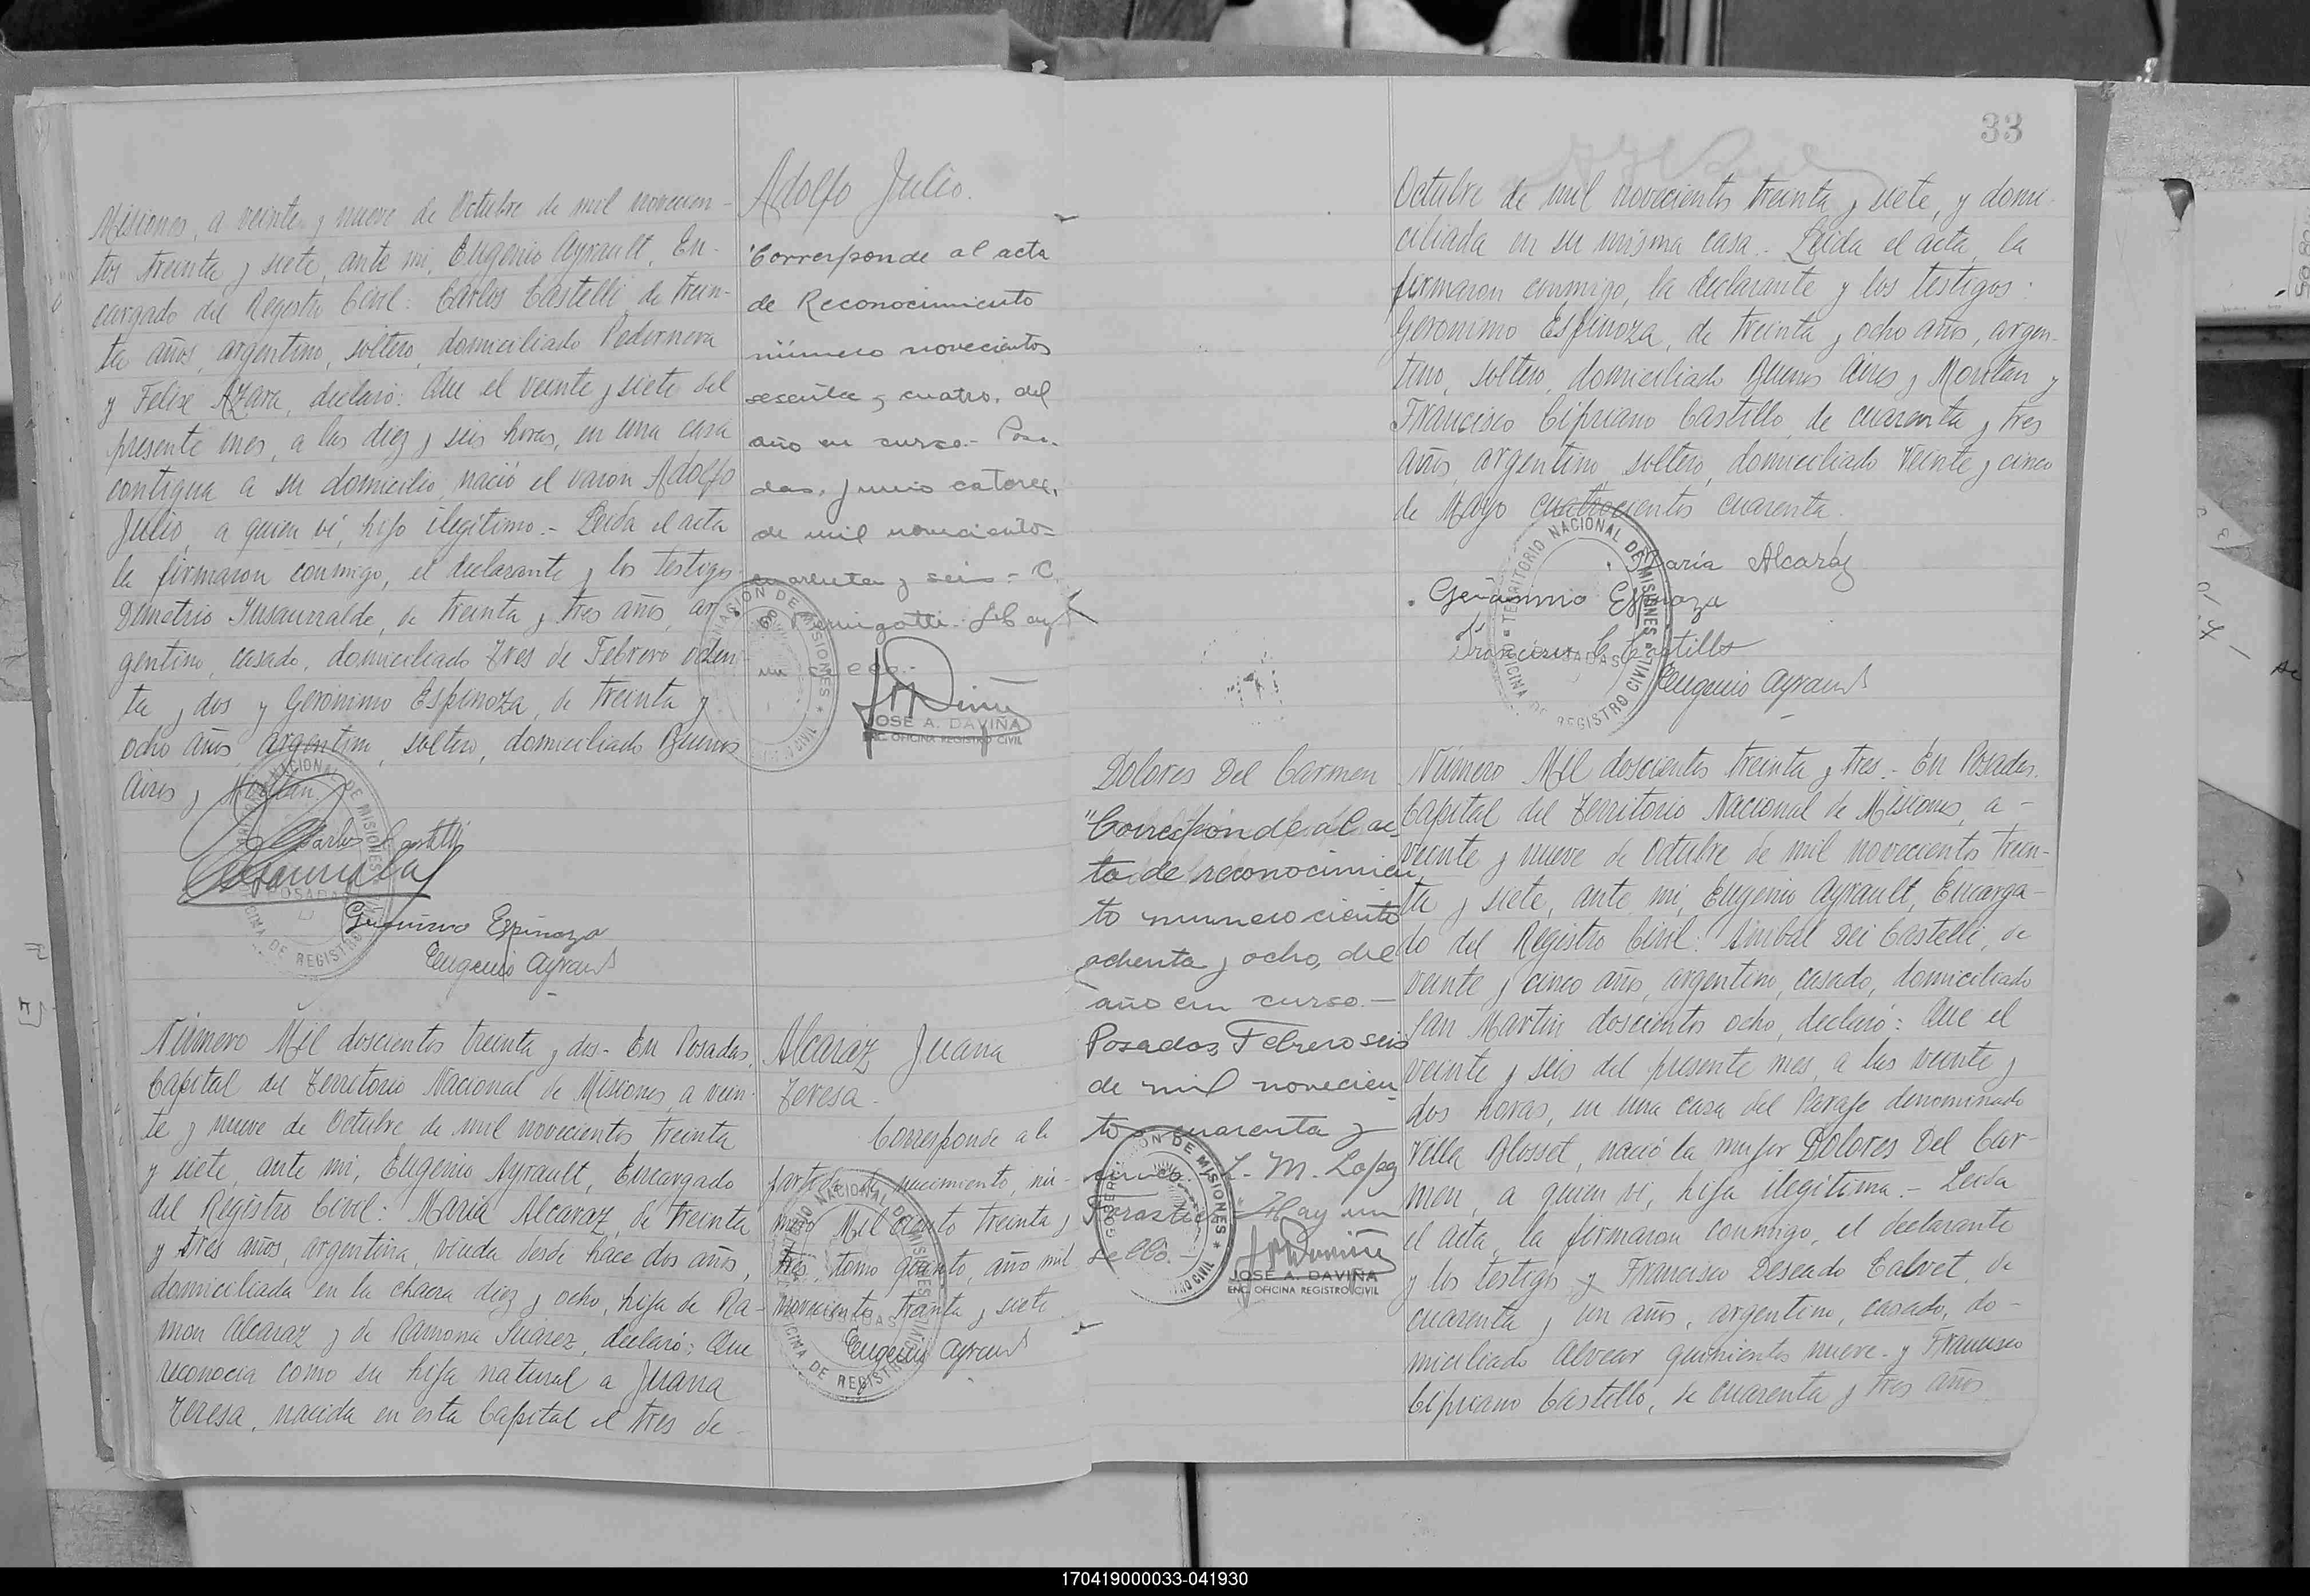 Misiones, a veinte y nueve de Octubre de mil novecien-
tos treinta y siete, ante mi, Eugenio Ayrault, En-
cargado del Registro Civil: Carlos Castelli, de trein-
ta años, argentino, soltero, domiciliado Pedernera
y Felix Azara, declaró: Que el veinte y siete del
presente mes, a las diez y seis horas, en una casa
contigua a su domicilio, nació el varon Adolfo
Julio, a quien vi, hijo ilegitimo.- Leida el acta
la firmaron conmigo, el declarante y los testigos
Demetrio Insaurralde, de treinta y tres años, ar-
gentino, casado, domiciliado Tres de Febrero ochen-
ta y dos y Geronimo Espinoza, de treinta y
ocho años, argentino, soltero, domiciliado Buenos
Aires y Moritan
Carlos Castelli
Gerónimo Espinoza
Eugenio Ayrault
Adolfo Julio.
"Corresponde al acta
de Reconocimiento
número novecientos
sesenta y cuatro, del
año en curso.- Posa-
das, Junio catorce,
de mil novecientos
cuarenta y seis = C.
Hay
un sello.-
JOSE A. DAVIÑA
ENC. OFICINA REGISTRO CIVIL
Número Mil doscientos treinta y dos.- En Posadas,
Capital del Territorio Nacional de Misiones, a vein-
te y nueve de Octubre de mil novecientos treinta
y siete, ante mi, Eugenio Ayrault, Encargado
del Registro Civil: Maria Alcaraz, de treinta
y tres años, argentina, viuda desde hace dos años,
domiciliada en la chacra diez y ocho, hija de Ra-
mon Alcaraz y de Ramona Suarez, declaró: Que
reconocia como su hija natural a Juana
Teresa, nacida en esta Capital el tres de
Alcaraz Juana
Teresa.
Corresponde a la
partida de nacimiento, nú-
mero Mil ciento treinta y
tres, tomo quinto, año mil
novecientos treinta y siete
Eugenio Ayrault
33
Octubre de mil novecientos treinta y siete, y domi-
ciliada en su misma casa.- Leida el acta, la
firmaron conmigo, la declarante y los testigos:
Geronimo Espinoza, de treinta y ocho años, argen-
tino, soltero, domiciliado Buenos Aires y Moritan y
Francisco Cipriano Castillo, de cuarenta y tres
años, argentino, soltero, domiciliado Veinte y cinco
de Mayo cuatrocientos cuarenta.
Maria Alcaráz
Gerónimo Espinoza
Francisco C Castillo
Eugenio Ayrault
Dolores Del Carmen
"Corresponde al ac-
ta de reconocimien
to numero ciento
ochenta y ocho, del
año en curso.-
Posadas, Febrero seis
de mil novecien
tos cuarenta y
cinco. L. M. Lopez
Hay un
sello.
JOSE A. DAVIÑA
ENC. OFICINA REGISTRO CIVIL
Número Mil doscientos treinta y tres.- En Posadas,
Capital del Territorio Nacional de Misiones, a -
veinte y nueve de Octubre de mil novecientos trein-
ta y siete, ante mi, Eugenio Ayrault, Encarga-
do del Registro Civil: Anibal Dei Castelli, de
veinte y cinco años, argentino, casado, domiciliado
San Martin doscientos ocho, declaró: Que el
veinte y seis del presente mes, a las veinte y
dos horas, en una casa del Paraje denominado
Villa Blosset, nació la mujer Dolores Del Car-
men, a quien vi, hija ilegitima.- Leida
el acta, la firmaron conmigo, el declarante
y los testigos y Francisco Deseado Calvet, de
cuarenta y un años, argentino, casado, do-
miciliado Alvear quinientos nueve y Francisco
Cipriano Castillo, de cuarenta y tres años
170419000033-041930